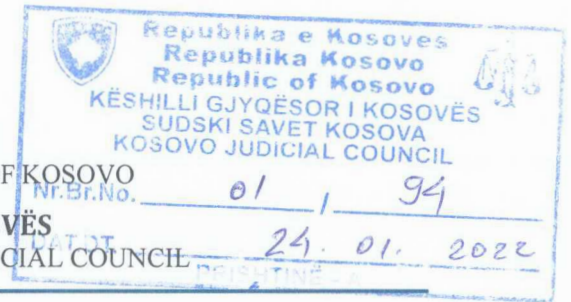 Republika e Kosovës
Republika Kosovo
Republic of Kosovo
KËSHILLI GJYQËSOR I KOSOVËS
SUDSKI SAVET KOSOVA
KOSOVO JUDICIAL COUNCIL
F KOSOVO
Nr.Br.No. 01 / 94
VËS
DAT.DT. 24. 01. 2022
CIAL COUNCIL
PRISHTINË - A